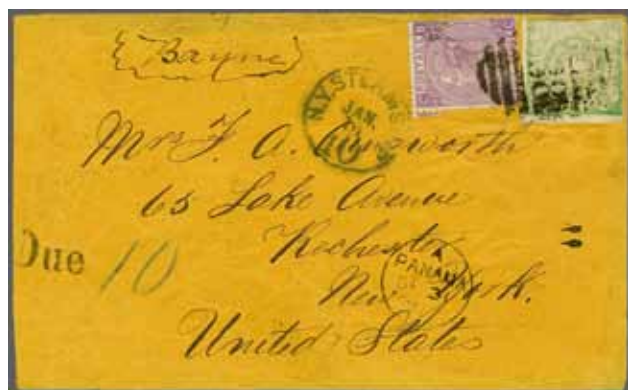 {Bayne}
N.Y. STEAMSHIP
JAN.
10
Mrs F. A.
65 Lake Avenue
Rochester
New York.
United States
Due 10
A
PANAMA
3